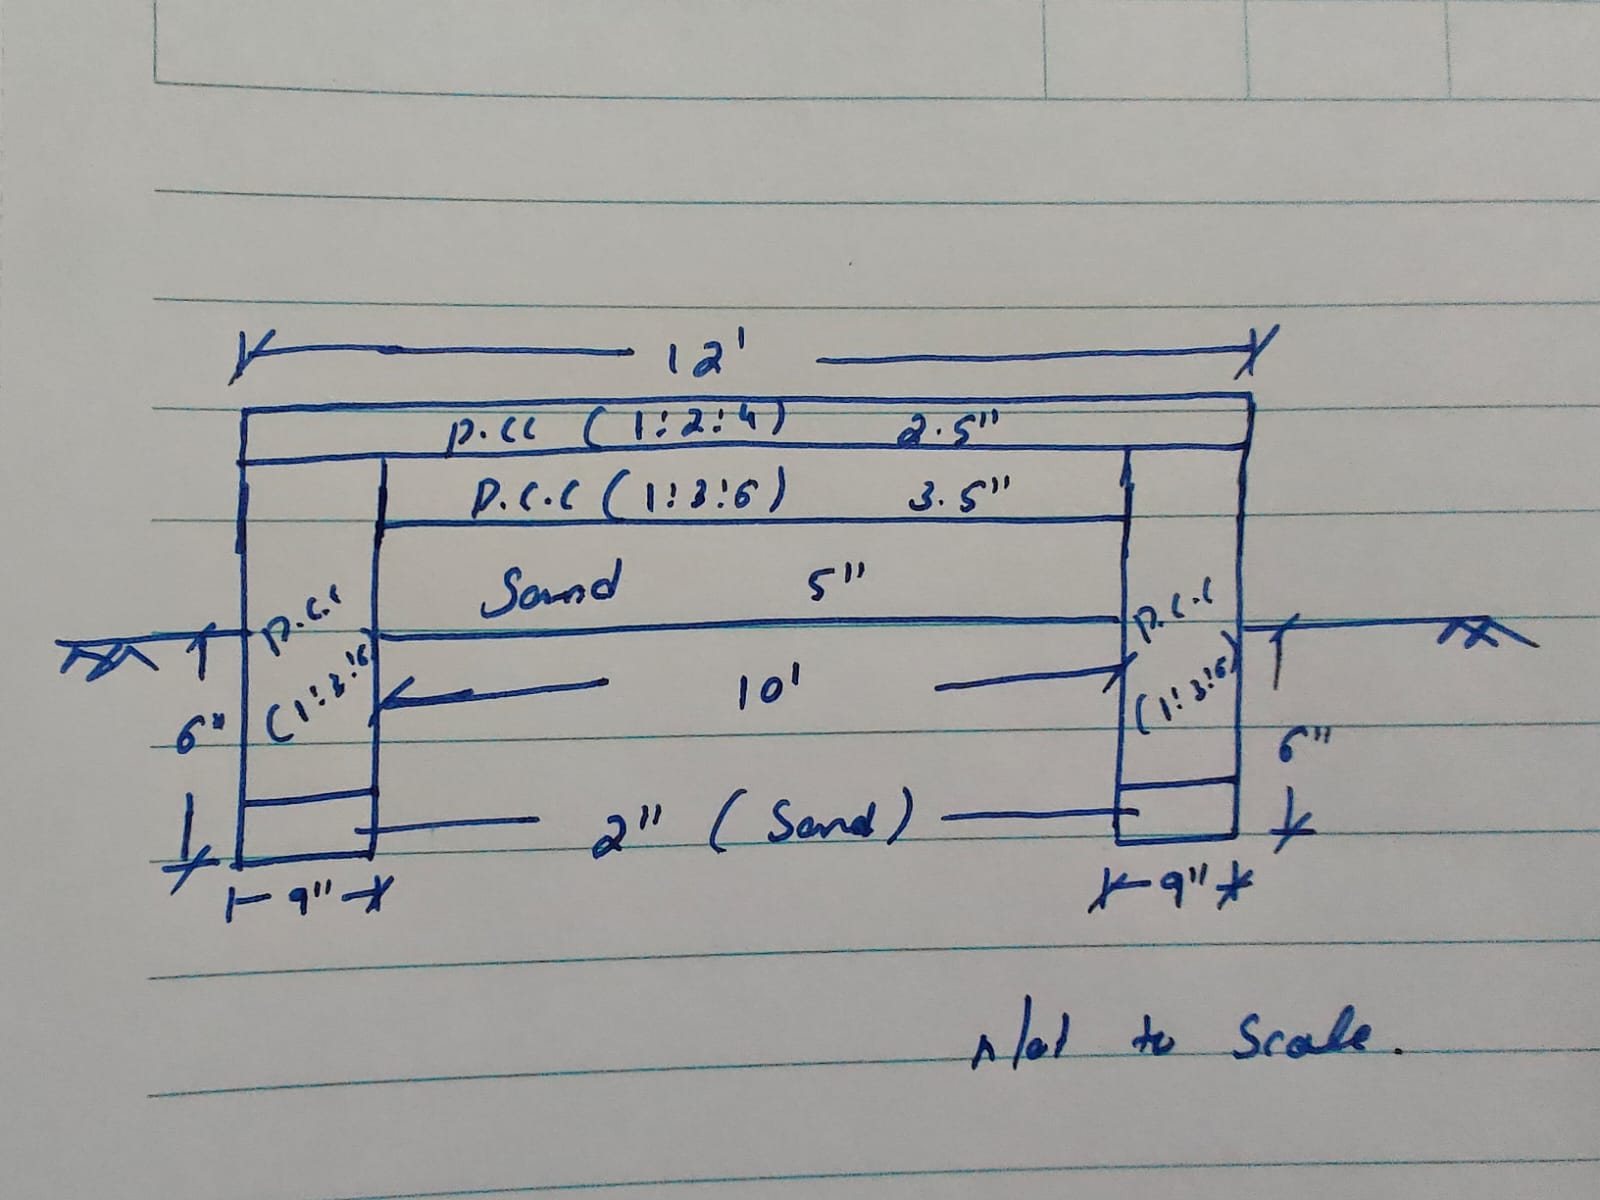 12'
P.CC (1:2:4) 2.5"
P.C.C (1:3:6) 3.5"
Sand 5"
P.C.C
(1:3:6)
P.C.C
(1:3:6)
10'
6"
6"
2" (Sand)
9"
9"
Not to Scale.